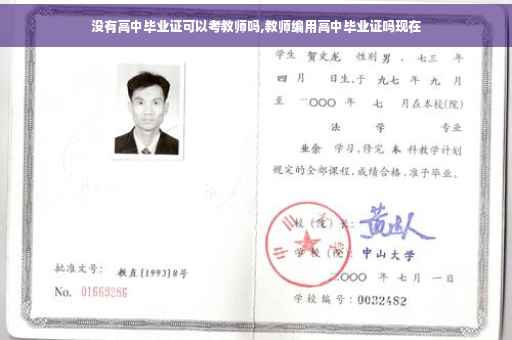 没有高中毕业证可以考教师吗,教师编用高中毕业证吗现在
学生 贺文龙 性别 男 、七三 年
四 月 日生,于 九七 年 九 月
至 二〇〇〇 年 七 月在本校(院)
法 学 专业
业余 学习,修完 本 科教学计划
规定的全部课程,成绩合格,准予毕业。
校(院)长:
学 校(院): 中山大学
二〇〇〇 年 七 月 一 日
批准文号: 教直(1993)8号
No. 01669286
学校编号: 0032482